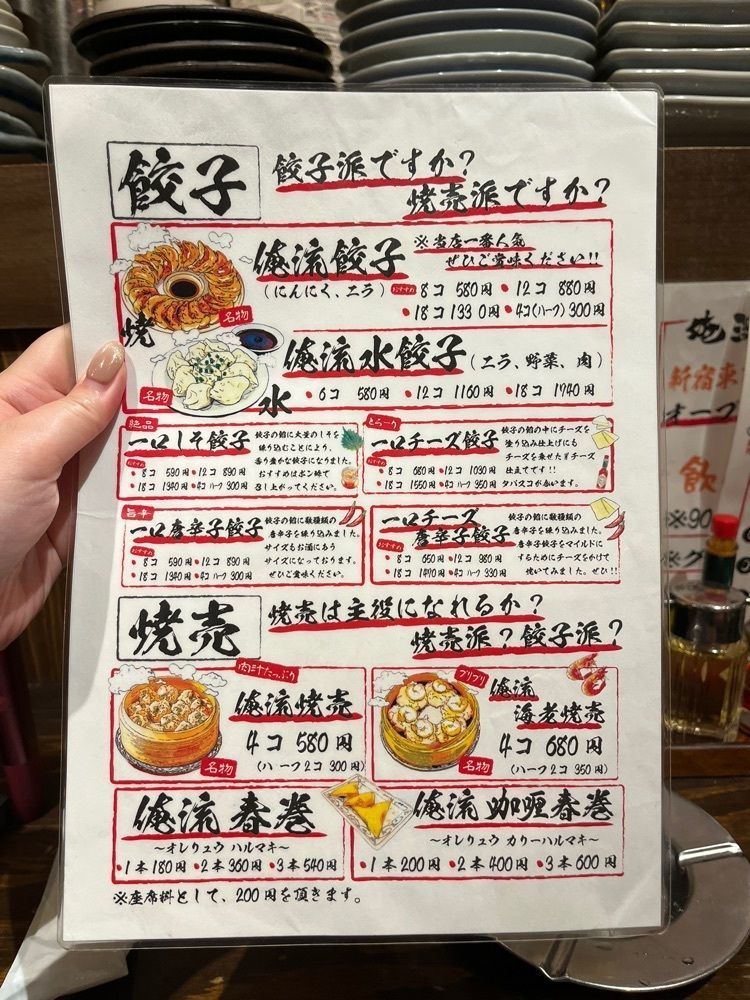 餃子
餃子派ですか?
焼売派ですか?
俺流餃子
※当店一番人気
ぜひご賞味ください!!
(にんにく、ニラ)
おすすめ 8コ 580円 ・12コ 880円
・18コ 1330円 ・4コ(ハーフ)300円
名物
焼
俺流水餃子(ニラ、野菜、肉)
・6コ 580円 ・12コ 1160円 ・18コ 1740円
名物
水
絶品
一口しそ餃子
おすすめ
・8コ 590円 ・12コ 890円
・18コ 1340円 ・4コ ハーフ 300円
餃子の餡に大葉のしそを
練り込むことにより、
香り豊かな餃子になりました。
おすすめはポン酢で
召し上がってください。
とろ〜り
一口チーズ餃子
おすすめ
・8コ 680円 ・12コ 1030円
・18コ 1550円 ・4コ ハーフ 350円
餃子の餡の中にチーズを
塗り込み仕上げにも
チーズを乗せたWチーズ
仕立てです!!
タバスコが合います。
旨辛
一口唐辛子餃子
おすすめ
・8コ 590円 ・12コ 890円
・18コ 1340円 ・4コ ハーフ 300円
餃子の餡に数種類の
唐辛子を練り込みました。
サイズもお酒にあう
サイズになっております。
ぜひご賞味ください。
一口チーズ
唐辛子餃子
おすすめ
・8コ 650円 ・12コ 980円
・18コ 1470円 ・4コ ハーフ 330円
餃子の餡に数種類の
唐辛子を練り込みました。
唐辛子餃子をマイルドに
するためにチーズをかけて
焼いてみました。ぜひ!!
焼売
焼売は主役になれるか?
焼売派?餃子派?
肉汁たっぷり
俺流焼売
4コ 580円
(ハーフ2コ 300円)
名物
プリプリ
俺流
海老焼売
4コ 680円
(ハーフ2コ 350円)
名物
俺流 春巻
〜オレリュウ ハルマキ〜
・1本180円 ・2本360円 ・3本540円
俺流 咖喱春巻
〜オレリュウ カリーハルマキ〜
・1本200円 ・2本400円 ・3本600円
※座席料として、200円を頂きます。
新宿東
オープ
飲
※90